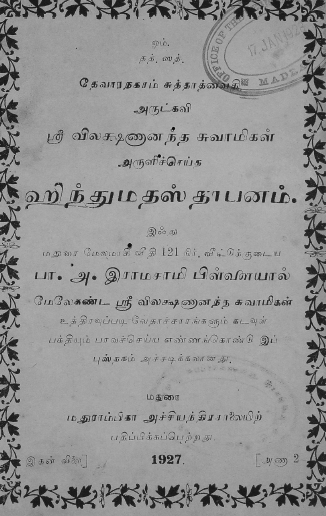 ஓம்.
தத், ஸத்.
தேவாரதகாம் சுத்தாத்வைதி
அருட்கவி
ஸ்ரீ விலக்ஷணானந்த சுவாமிகள்
அருளிச்செய்த
ஹிந்துமதஸ்தாபனம்.
இஃது
மதுரை மேலமாசி வீதி 121 ம்
பா. அ. இராமசாமி பிள்ளையால்
மேலேகண்ட ஸ்ரீ விலக்ஷணானந்த சுவாமிகள்
உத்திரவுப்படி வேதாச்சாரங்களும் கடவுள்
பக்தியும் பரவச்செய்ய எண்ணங்கொண்டு இப்
புஸ்தகம் அச்சடிக்கலானது.
மதுரை
மதுராம்பிகா அச்சியந்திரசாலையிற்
பதிப்பிக்கப்பெற்றது
இதன் விலை] 1927. [அணா 2
OFFICE OF THE
17 JAN 192
MADU